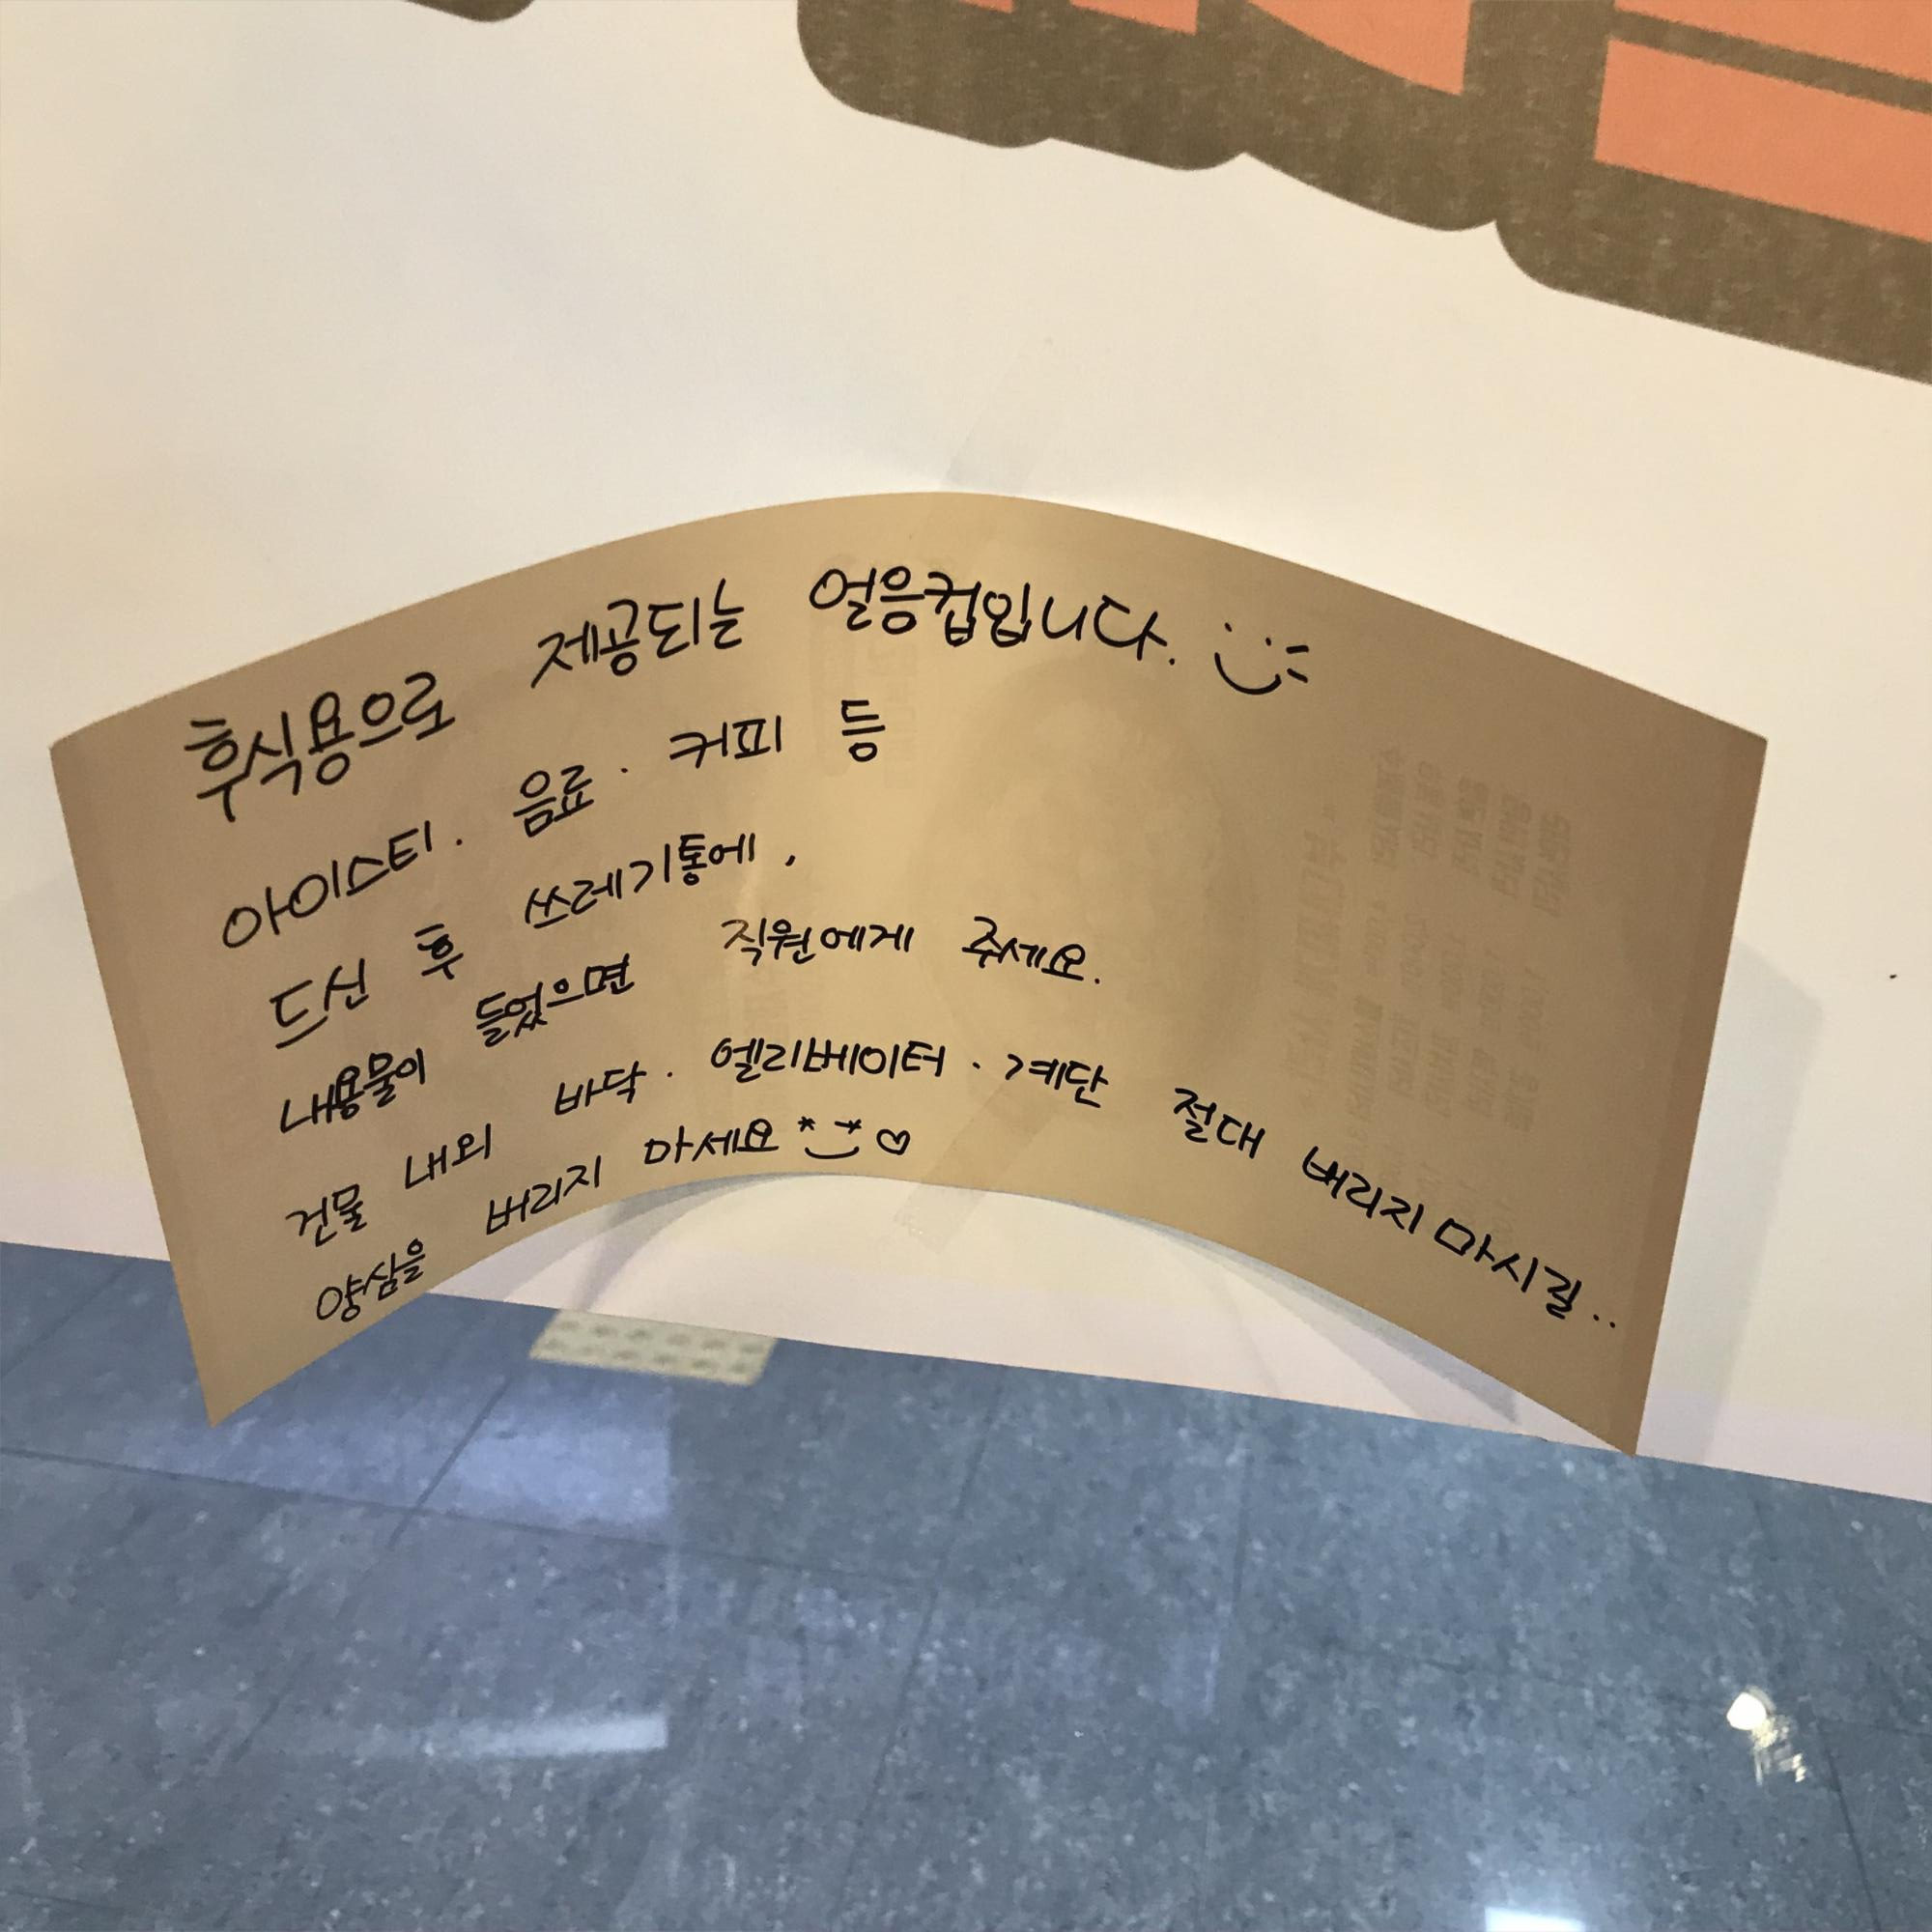 후식용으로 제공되는 얼음컵입니다.
아이스티 · 음료 · 커피 등
드신 후 쓰레기통에,
내용물이 들었으면 직원에게 주세요.
건물 내외 바닥 · 엘리베이터 · 계단 절대 버리지 마시길..
양심을 버리지 마세요 ♡